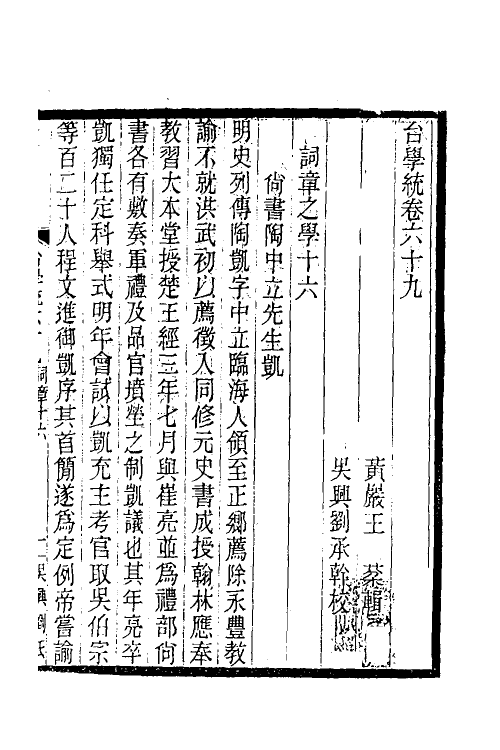 台學統卷六十九
黃巖王　棻輯
吳興劉承幹校
詞章之學十六
尙書陶中立先生凱
明史列傳陶凱字中立臨海人領至正鄉薦除永豐教
諭不就洪武初以薦徵入同修元史書成授翰林應奉
教習大本堂授楚王經三年七月與崔亮並爲禮部尙
書各有敷奏軍禮及品官墳塋之制凱議也其年亮卒
凱獨任定科舉式明年會試以凱充主考官取吳伯宗
等百二十人程文進御凱序其首簡遂爲定例帝嘗諭
詞章十六